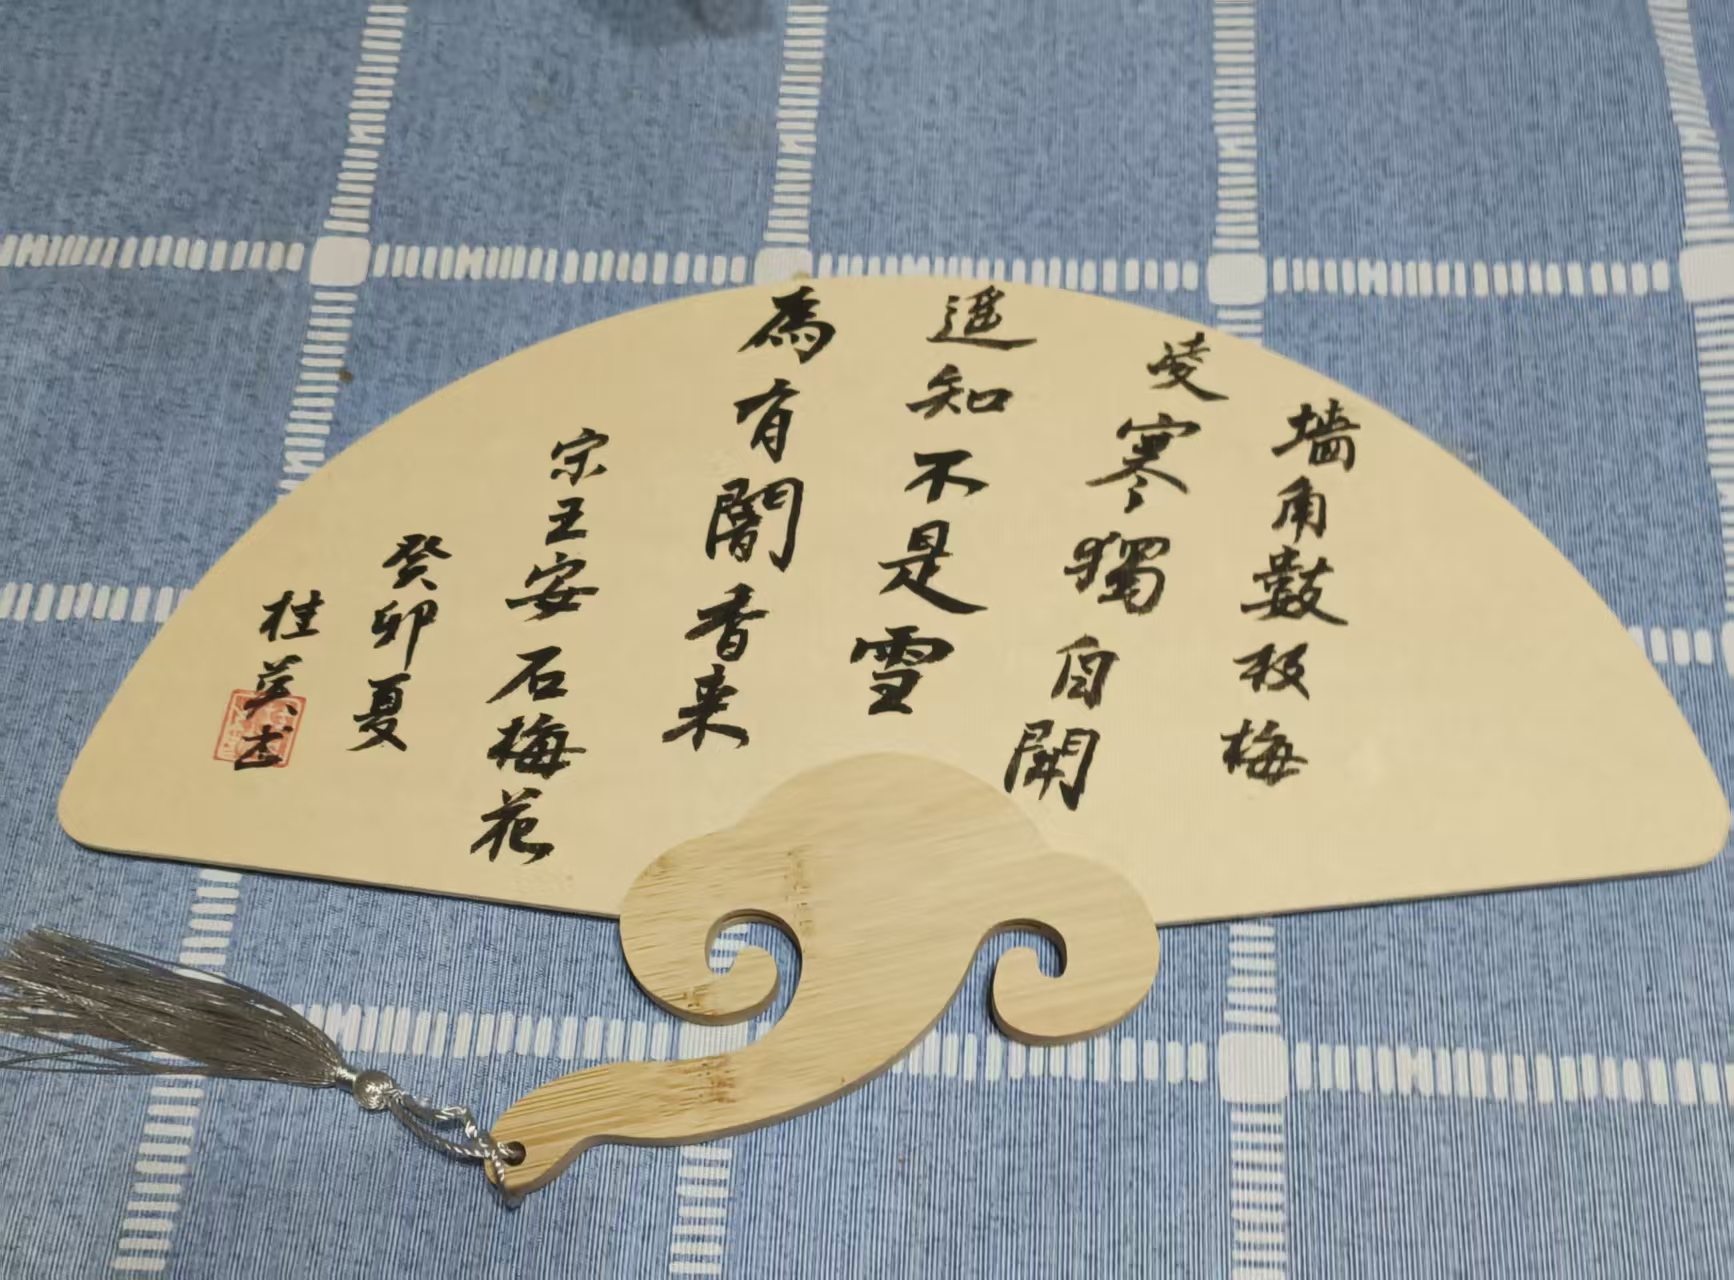 墙角數枝梅
凌寒獨自開
遥知不是雪
為有闇香来
宋王安石梅花
癸卯夏
桂英书